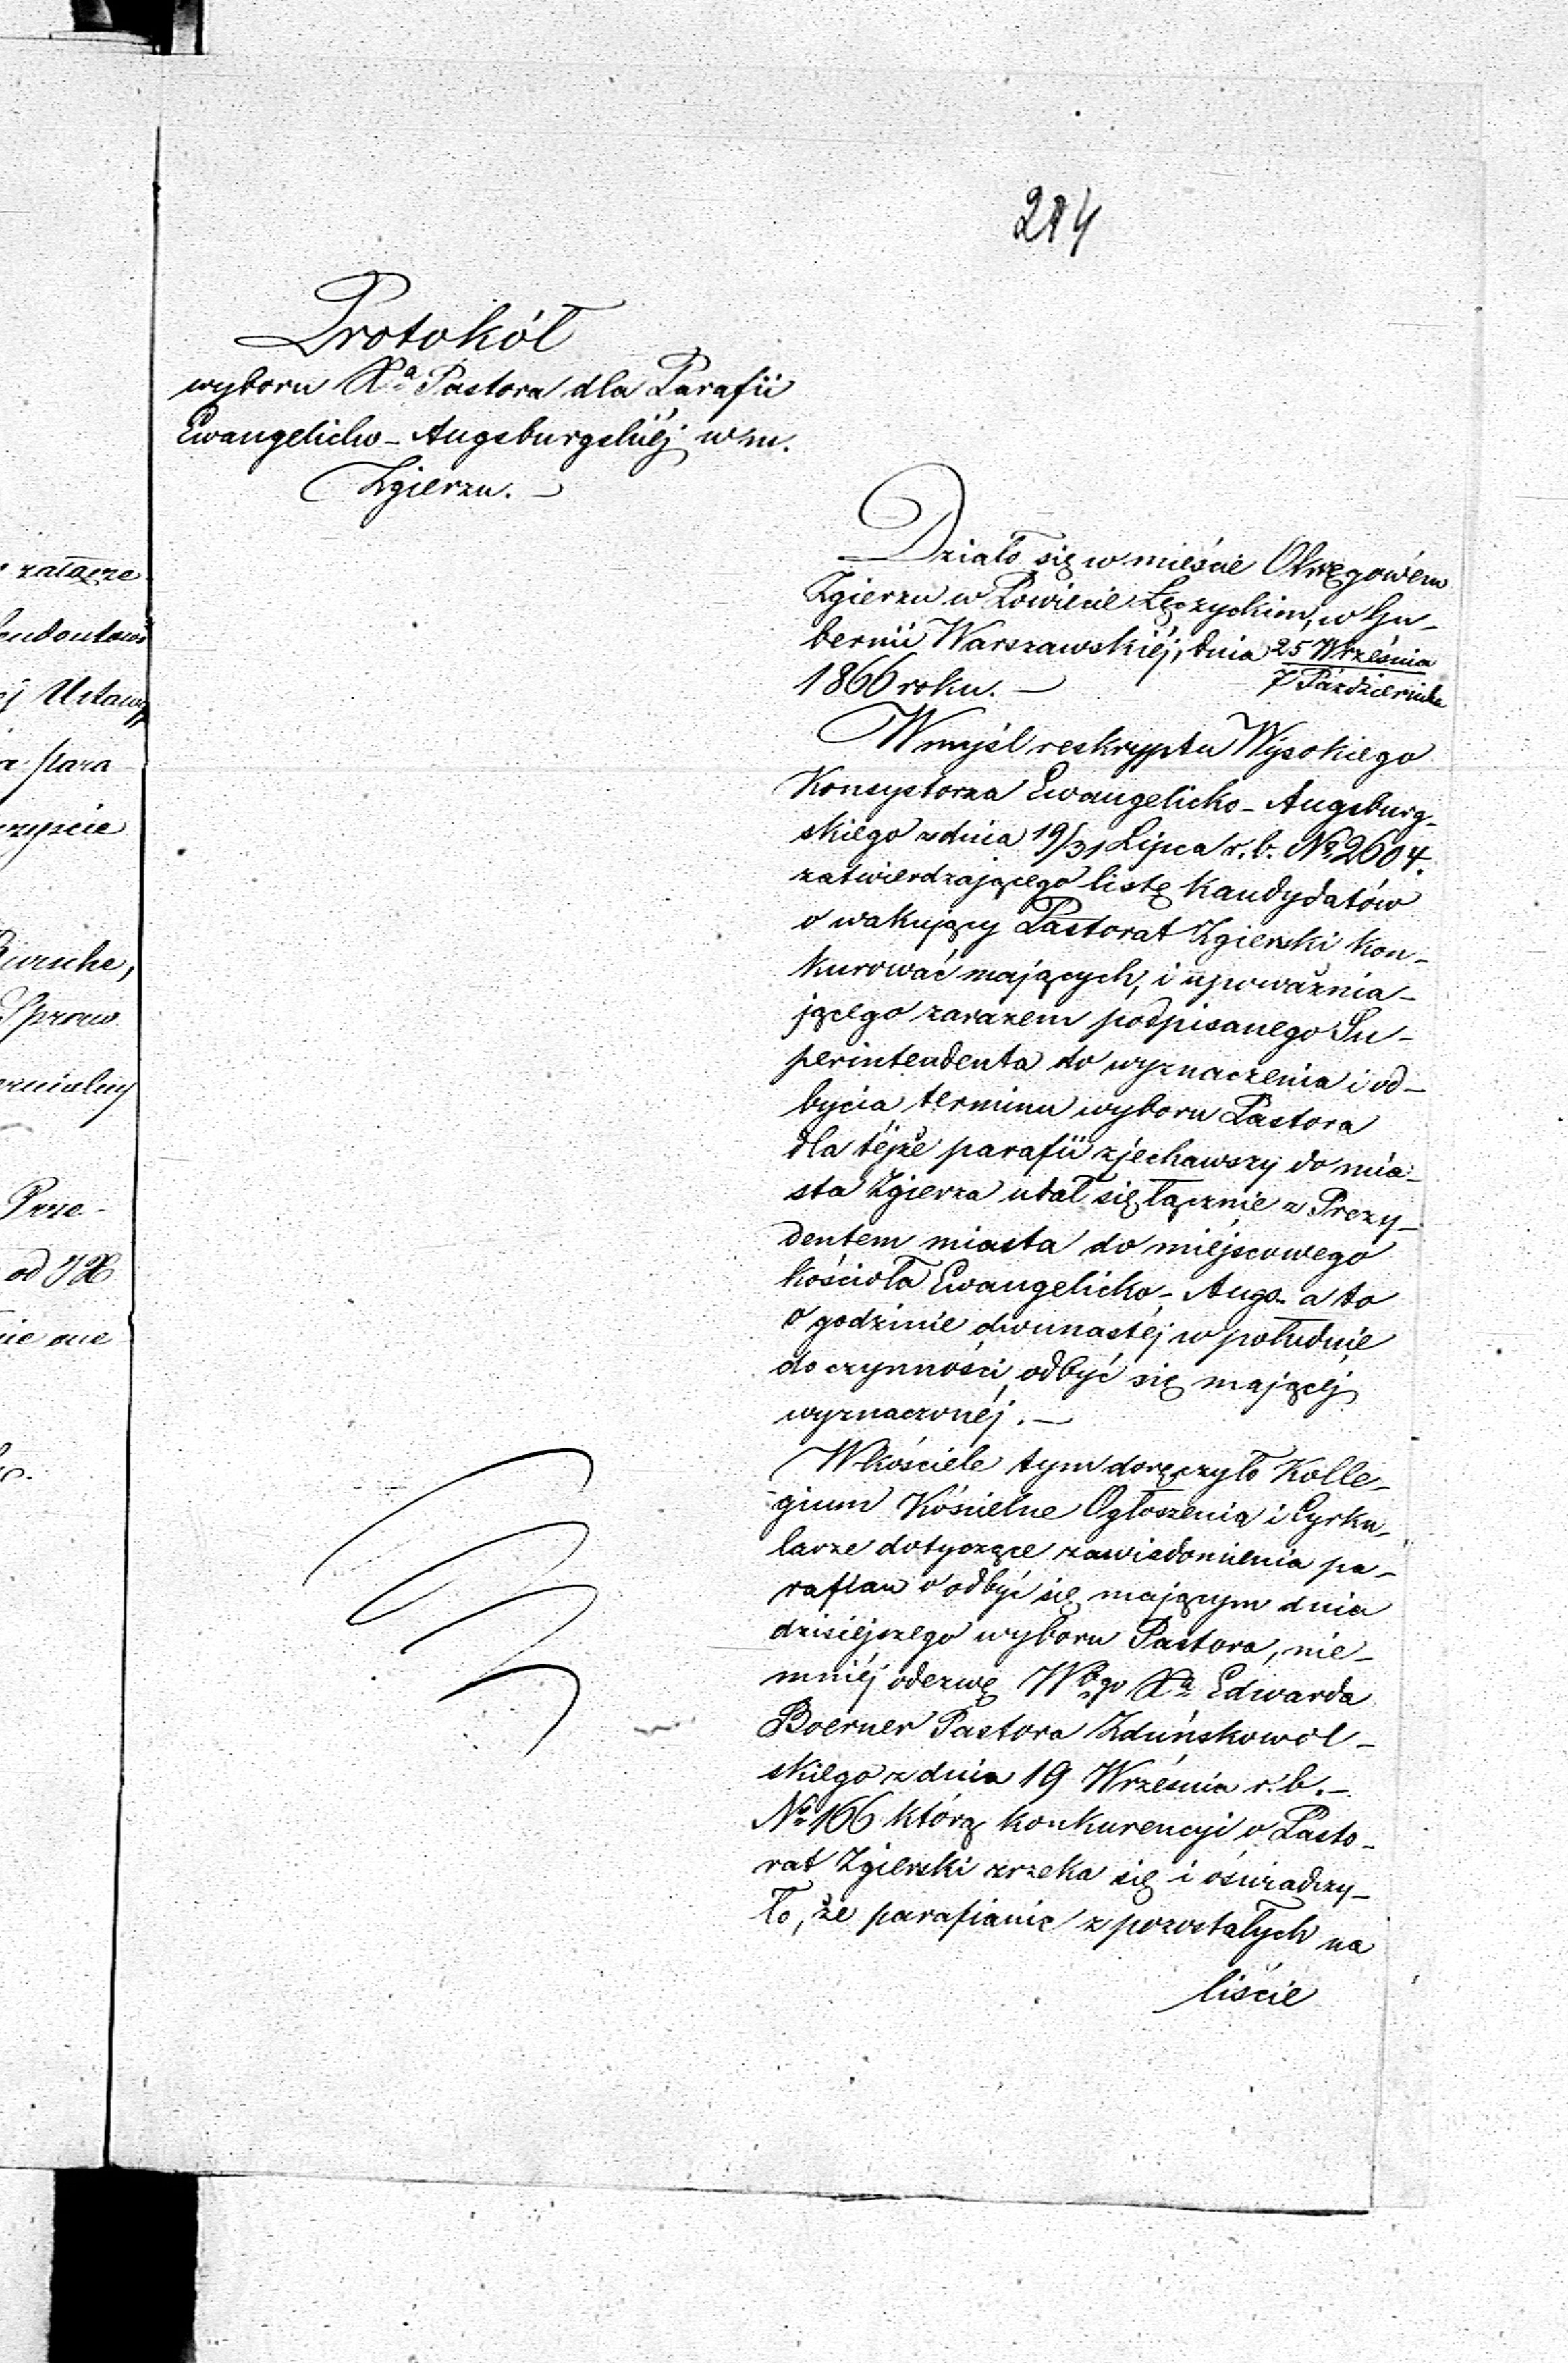 214
Protokół
wyboru Xa Pastora dla Parafii
Ewangelicko-Augsburgskiéj w m.
Zgierzu. —
Działo się w mieście Okręgowém
Zgierzu w Powiecie Łęczyckim, w Gu-
bernii Warszawskiéj, dnia 25 Września
7 Października
1866 roku. —
W myśl reskryptu Wysokiego
Konsystorza Ewangelicko-Augsburg-
skiego z dnia 19/31 Lipca r. b. No 2604.
zatwierdzającego listę kandydatów
o wakujący Pastorat Zgierski kon-
kurować mających, i upoważnia-
jącego zarazem podpisanego Su-
perintendenta do wyznaczenia i od-
bycia terminu wyboru Pastora
dla téjże parafii zjechawszy do mia-
sta Zgierza udał się łącznie z Prezy-
dentem miasta do miejscowego
kościoła Ewangelicko-Augs. a to
o godzinie dwunastéj w południe
do czynności odbyć się mającéj
wyznaczonéj. —
W kościele tym doręczyło Kolle-
gium Kościelne Ogłoszenia i Cyrku-
larze dotyczące zawiadomienia pa-
rafian o odbyć się mającym dnia
dzisiejszego wyboru Pastora, nie-
mniéj odezwę Wbgo Xa Edwarda
Boerner Pastora Zduńskowol-
skiego z dnia 19 Września r. b. —
No 166 którą konkurencyi o Pasto-
rat Zgierski zrzeka się i oświadczy-
ło, że parafianie z pozostałych na
liście
załącze
Ustawy
para
Bursche,
Spraw
Prze-
od JX
nie one